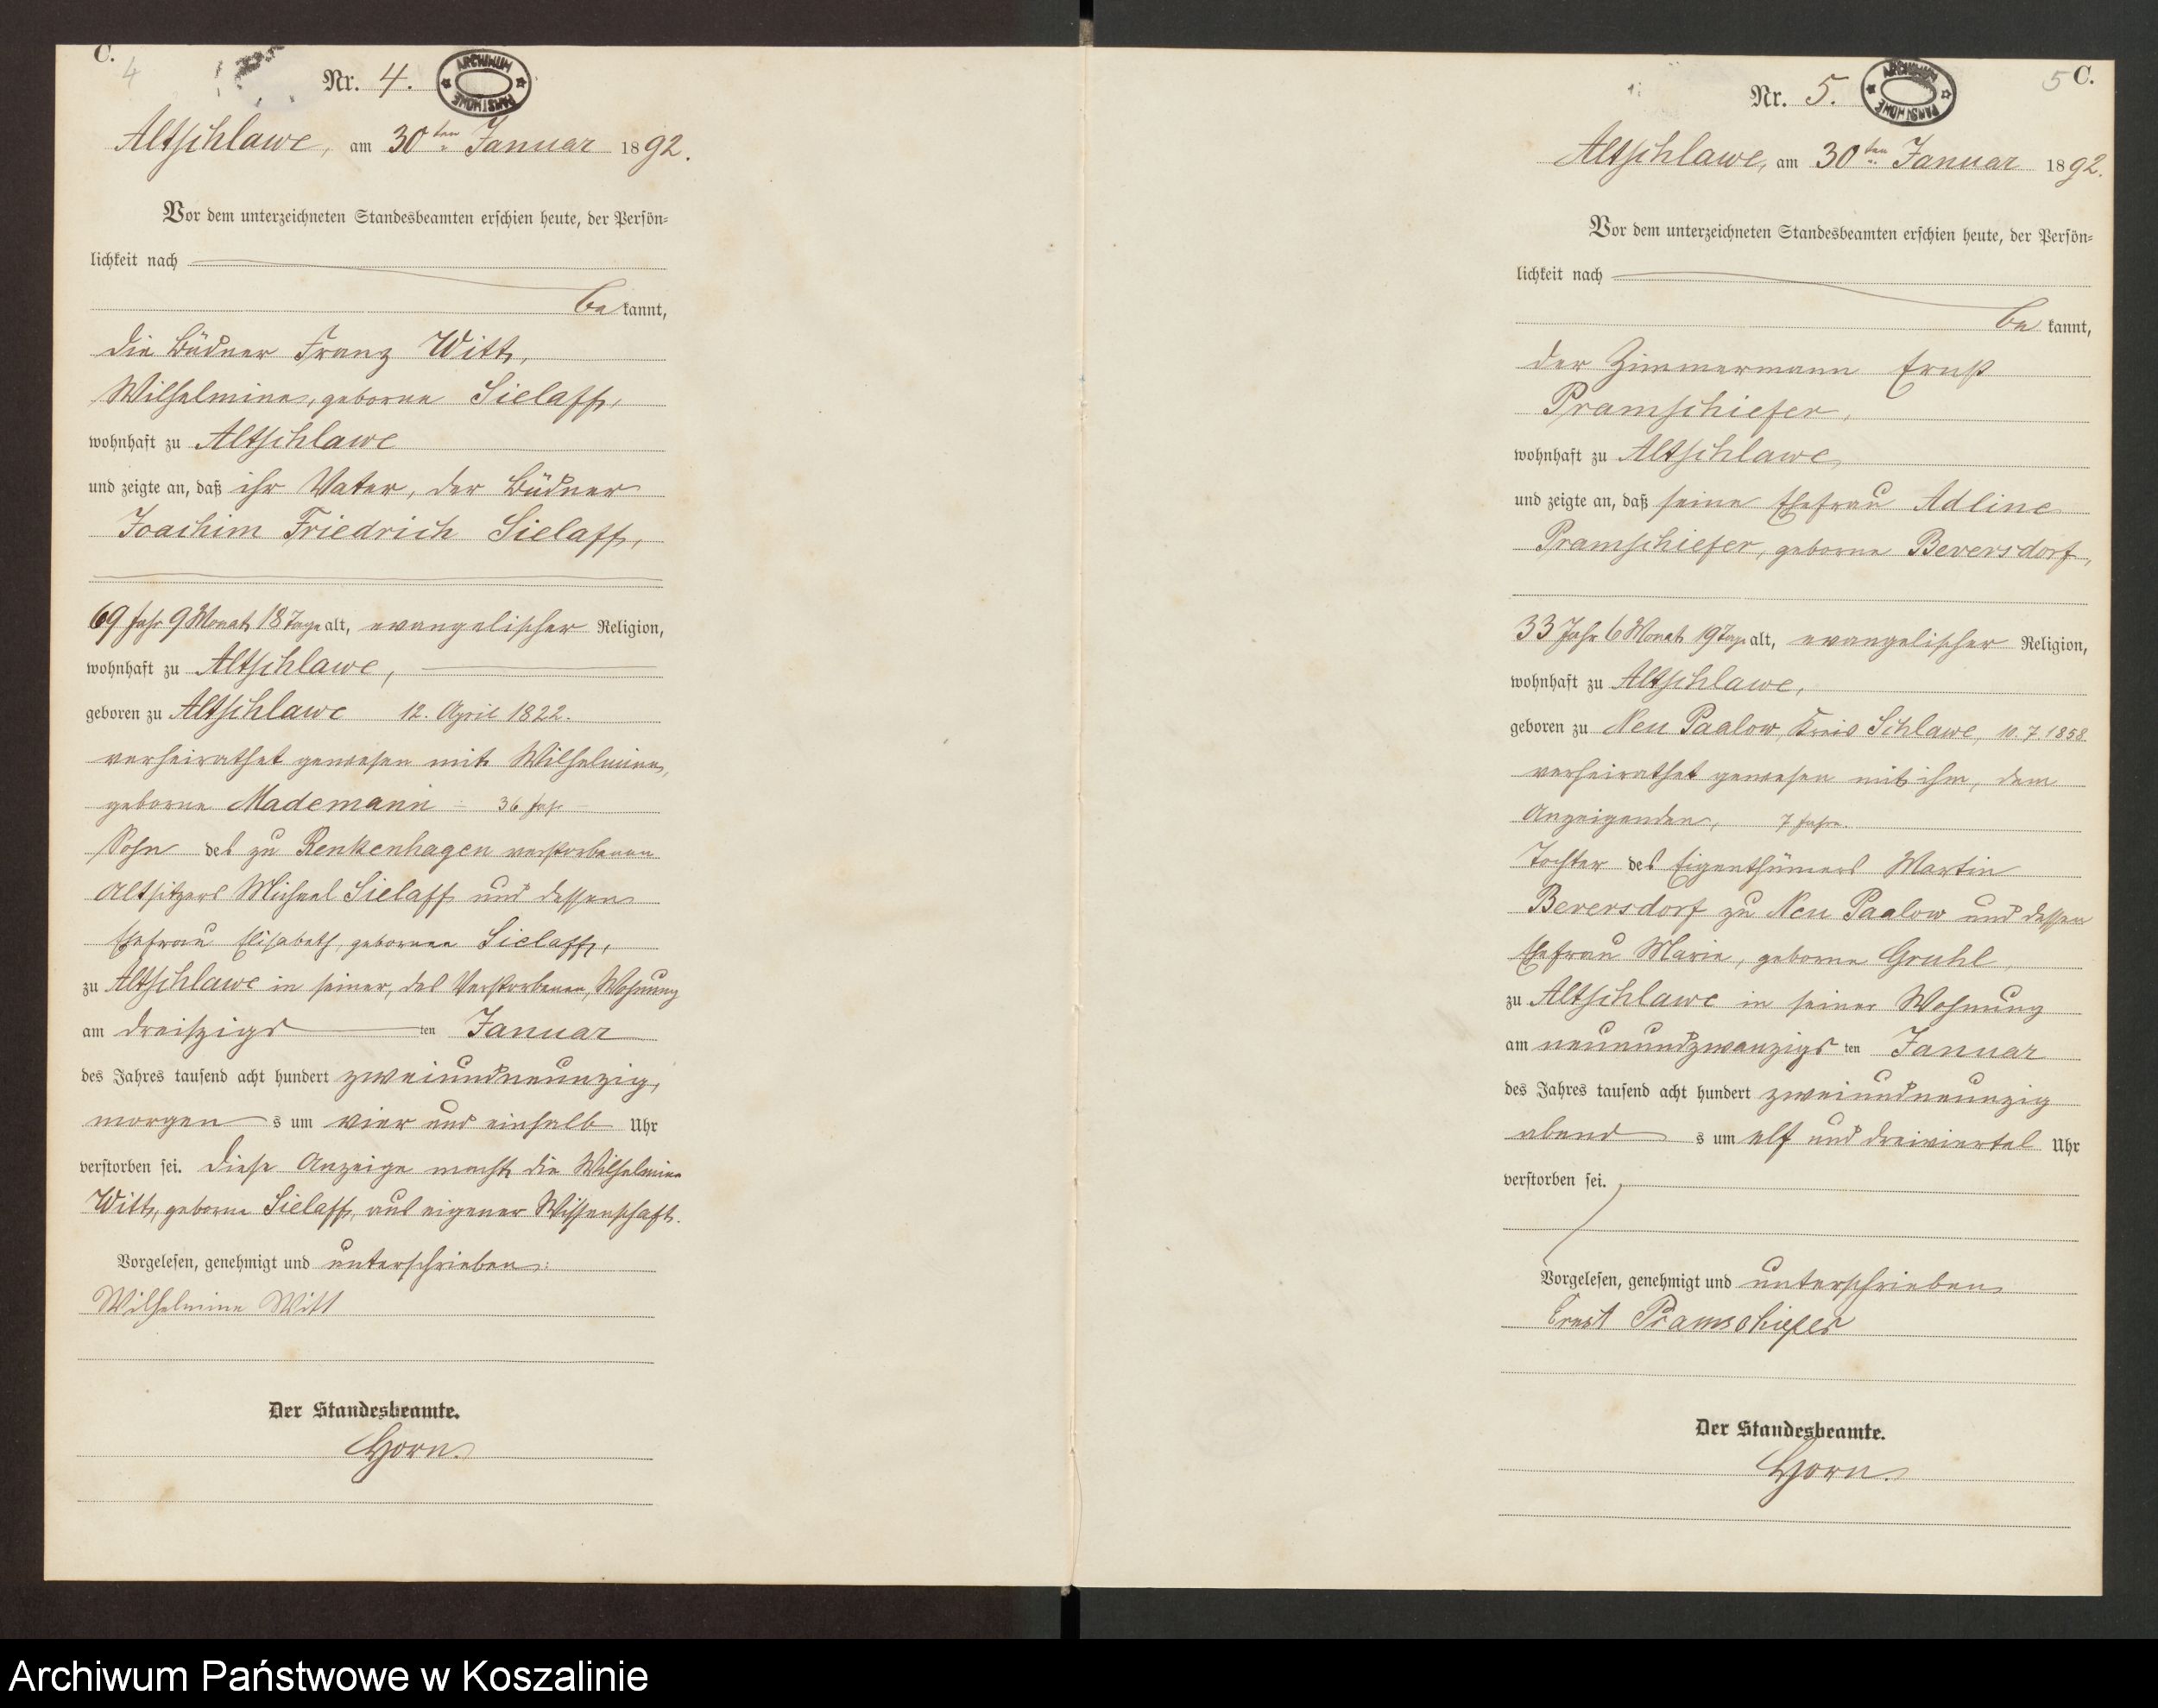 C.
4
Nr. 4.
ARCHIWUM PAŃSTWOWE
Altschlawe, am 30ten Januar 1892.
Vor dem unterzeichneten Standesbeamten erschien heute, der Persön-
lichkeit nach
be kannt,
die Büdner Franz Witt,
Wilhelmine, geborne Sielaff,
wohnhaft zu Altschlawe
und zeigte an, daß ihr Vater, der Büdner
Joachim Friedrich Sielaff,
69 Jahr 9 Monat 18 Tage alt, evangelischer Religion,
wohnhaft zu Altschlawe,
geboren zu Altschlawe 12. April 1822.
verheirathet gewesen mit Wilhelmine,
geborne Mademann - 36 Jahr -
Sohn des zu Renkenhagen verstorbenen
Altsitzers Michael Sielaff und dessen
Ehefrau Elisabeth, gebornen Sielaff,
zu Altschlawe in seiner, des Verstorbenen, Wohnung
am dreißigs ten Januar
des Jahres tausend acht hundert zweiundneunzig,
morgen s um vier und einhalb Uhr
verstorben sei. Diese Anzeige macht die Wilhelmine
Witt, geborne Sielaff, aus eigener Wissenschaft.
Vorgelesen, genehmigt und unterschrieben:
Wilhelmine Witt
Der Standesbeamte.
Horn.
5 C.
Nr. 5.
ARCHIWUM PAŃSTWOWE
Altschlawe, am 30ten Januar 1892.
Vor dem unterzeichneten Standesbeamten erschien heute, der Persön-
lichkeit nach
be kannt,
der Zimmermann Ernst
Pramschiefer,
wohnhaft zu Altschlawe,
und zeigte an, daß seine Ehefrau Adline
Pramschiefer, geborne Beversdorf,
33 Jahr 6 Monat 19 Tage alt, evangelischer Religion,
wohnhaft zu Altschlawe,
geboren zu Neu Paalow, Kreis Schlawe, 10.7.1858
verheirathet gewesen mit ihm, dem
Anzeigenden, 7 Jahre.
Tochter des Eigenthümers Martin
Beversdorf zu Neu Paalow und dessen
Ehefrau Marie, geborne Gruhl,
zu Altschlawe in seiner Wohnung
am neunundzwanzigs ten Januar
des Jahres tausend acht hundert zweiundneunzig
abend s um elf und dreiviertel Uhr
verstorben sei.
Vorgelesen, genehmigt und unterschrieben
Ernst Pramschiefer
Der Standesbeamte.
Horn.
Archiwum Państwowe w Koszalinie